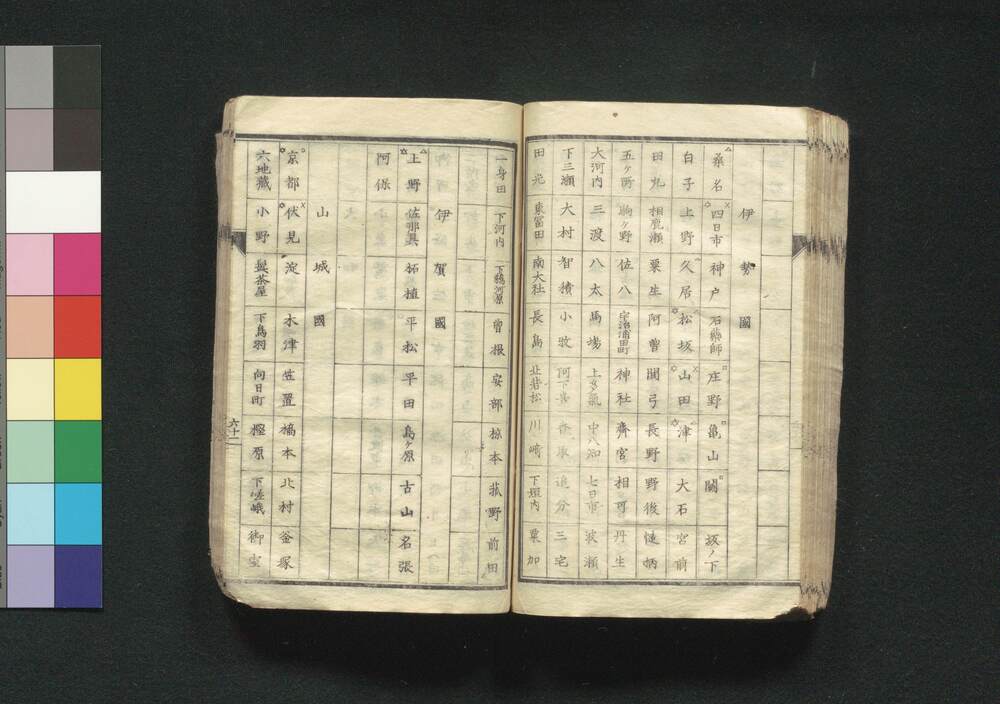 伊勢國
桑名 四日市 神戸 石藥師 庄野 亀山 關 坂ノ下
白子 上野 久居 松坂 山田 津 大石 宮前
田丸 相鹿瀬 粟生 阿曽 間弓 長野 野後 慥柄
五ヶ所 駒ヶ野 佐八 宇治浦田町 神社 齊宮 相可 丹生
大河内 三渡 八太 馬場 上多氣 中八知 七日市 波瀬
下三瀬 大村 智積 小牧 阿下喜 追分 三宅
田光 東冨田 南大社 長島 北若松 川崎 下垣内 粟加
一身田 下河内 下鵜河原 曽根 安部 椋本 菰野 前田
伊賀國
上野 佐那具 柘植 平松 平田 島ヶ原 古山 名張
阿保
山城國
京都 伏見 淀 木津 笠置 橋本 北村 釜塚
六地藏 小野 髭茶屋 下鳥羽 向日町 樫原 下嵯峨 御室
六十二